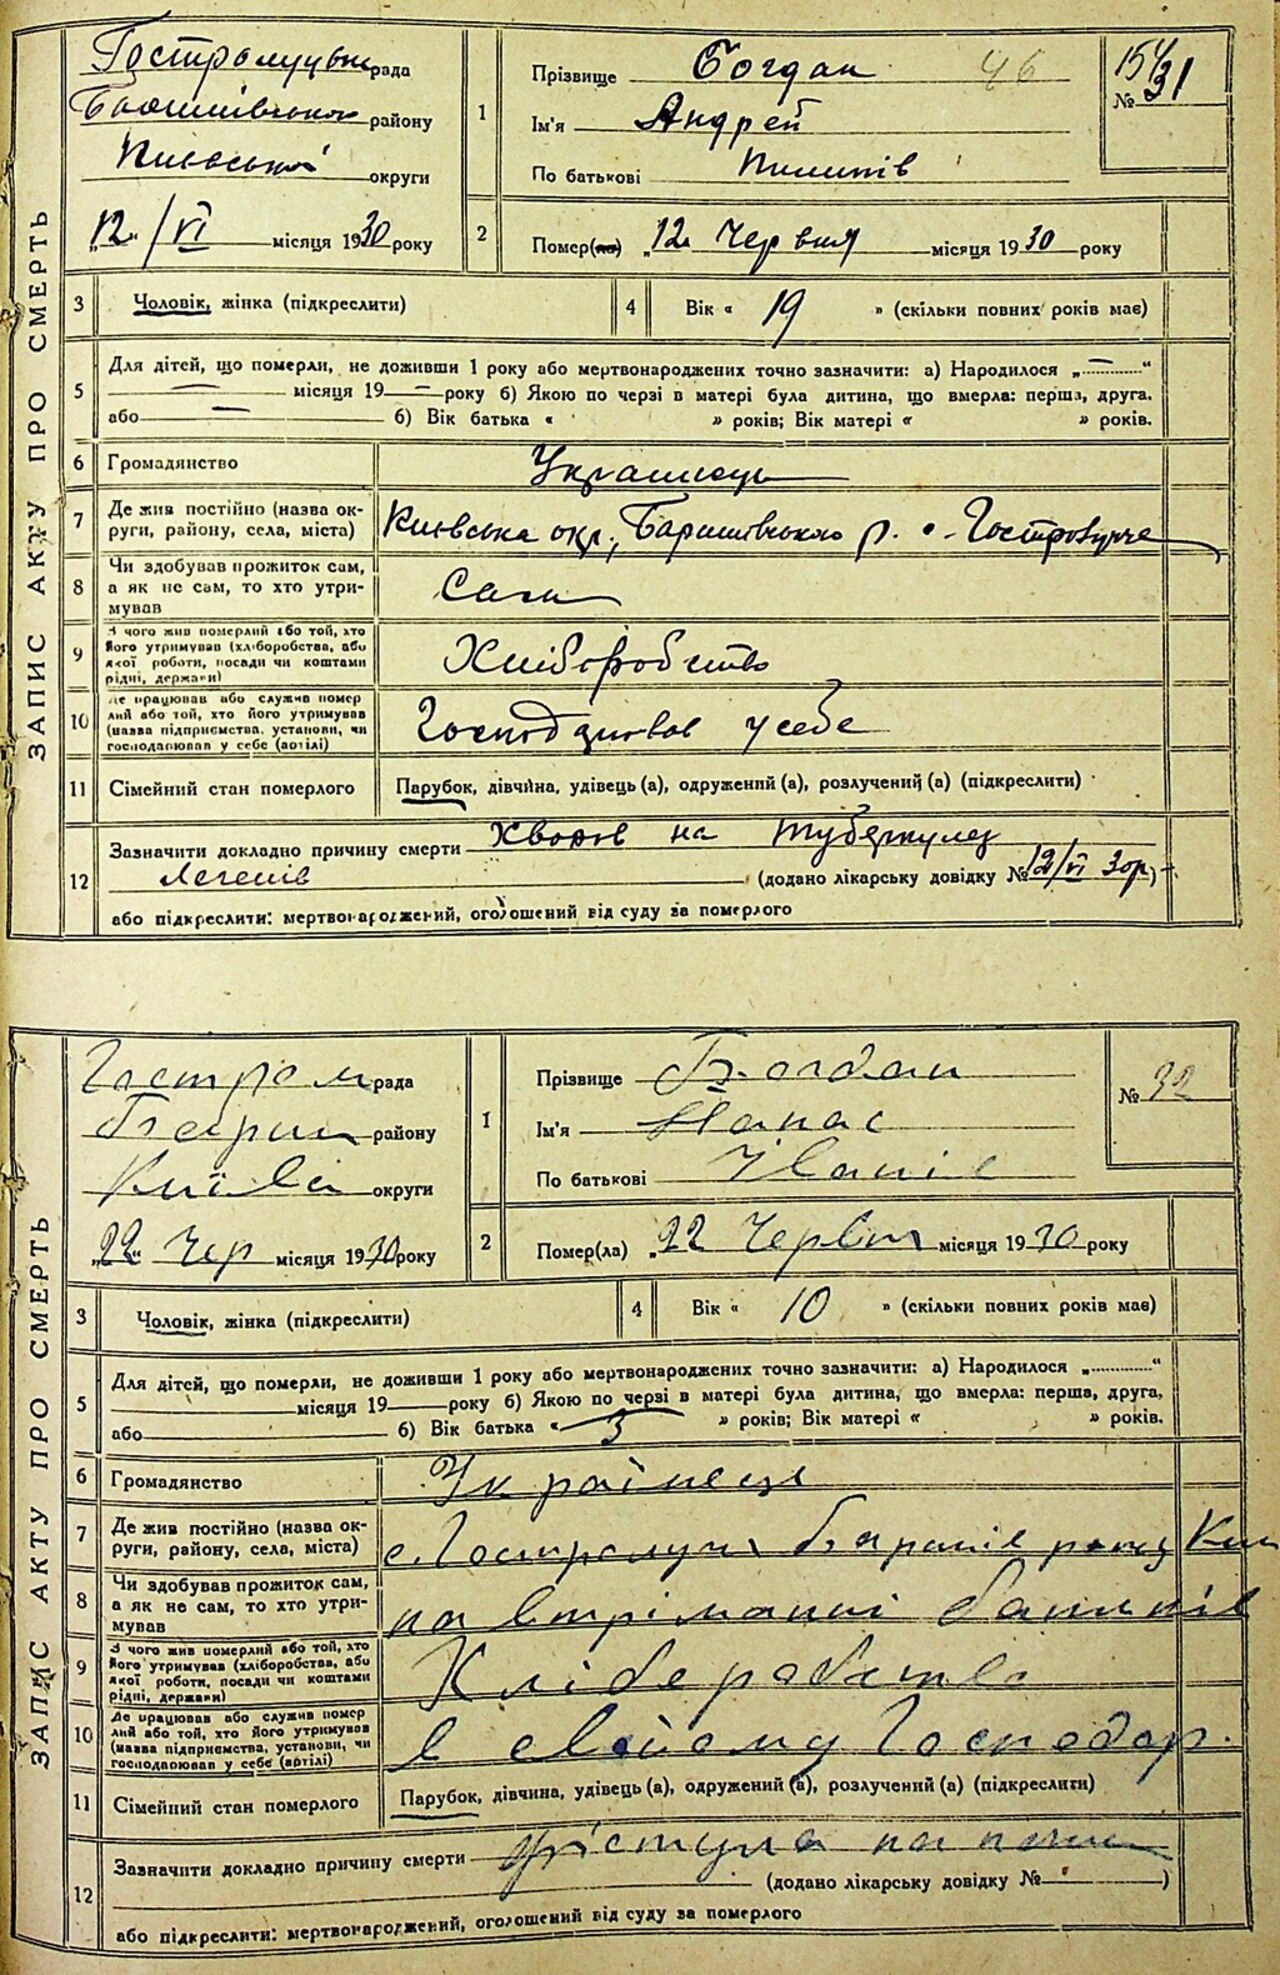 ЗАПИС АКТУ ПРО СМЕРТЬ
Гостролуцька рада
Баришівського району
Київської округи
„12“/VI місяця 1930 року
1
Прізвище Богдан 46
Ім'я Андрей
По батькові Пилипів
№ 31
2
Помер(ла) „12 Червня місяця 1930 року
3 Чоловік, жінка (підкреслити)
4 Вік « 19 » (скільки повних років має)
5 Для дітей, що померли, не доживши 1 року або мертвонароджених точно зазначити: а) Народилося „—“
— місяця 19—року б) Якою по черзі в матері була дитина, що вмерла: перша, друга.
або — б) Вік батька « » років; Вік матері « » років.
6 Громадянство Українець
7 Де жив постійно (назва ок-
руги, району, села, міста) Київська окр., Баришівського р. с. Гостролуччя
8 Чи здобував прожиток сам,
а як не сам, то хто утри-
мував Сам
9 З чого жив померлий або той, хто
його утримував (хліборобства, або
якої роботи, посади чи коштами
рідні, держави) Хліборобство
10 Де працював або служив помер
лий або той, хто його утримував
(назва підприємства, установи, чи
господарював у себе (артілі) Господарював у себе
11 Сімейний стан померлого Парубок, дівчина, удівець (а), одружений (а), розлучений (а) (підкреслити)
12 Зазначити докладно причину смерти Хворів на туберкулез
легенів (додано лікарську довідку № 12/VI 30р)
або підкреслити: мертвонароджений, оголошений від суду за померлого
ЗАПИС АКТУ ПРО СМЕРТЬ
Гостром рада
Бариш району
Київсь округи
„22“ Чер місяця 1930 року
1
Прізвище Богдан
Ім'я Панас
По батькові Іванів
№ 32
2
Помер(ла) „22 Червня місяця 1930 року
3 Чоловік, жінка (підкреслити)
4 Вік « 10 » (скільки повних років має)
5 Для дітей, що померли, не доживши 1 року або мертвонароджених точно зазначити: а) Народилося „“
місяця 19 року б) Якою по черзі в матері була дитина, що вмерла: перша, друга,
або б) Вік батька « 3 » років; Вік матері « » років.
6 Громадянство Українець
7 Де жив постійно (назва ок-
руги, району, села, міста) с. Гостролуч Баришів Ки
8 Чи здобував прожиток сам,
а як не сам, то хто утри-
мував на втріманні батьків
9 З чого жив померлий або той, хто
його утримував (хліборобства, або
якої роботи, посади чи коштами
рідні, держави) Хліборобство
10 Де працював або служив помер
лий або той, хто його утримував
(назва підприємства, установи, чи
господарював у себе (артілі) В своїому Господар.
11 Сімейний стан померлого Парубок, дівчина, удівець (а), одружений (а), розлучений (а) (підкреслити)
12 Зазначити докладно причину смерти фістула на
(додано лікарську довідку № )
або підкреслити: мертвонароджений, оголошений від суду за померлого